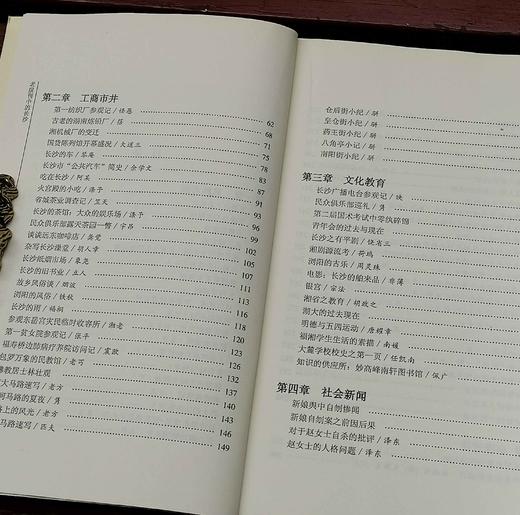 老报刊中的长沙
第二章 工商市井
第一纺织厂参观记/怪愚 62
古老的湖南炼铅厂/ 68
湘机械厂的变迁 71
国货陈列馆开幕盛况/大道三 75
长沙的车/ 78
长沙市“公共汽车”简史/余学文 83
吃在长沙/阿 87
火宫殿的小吃/涤予 93
省城茶业调查记/笠夫 97
长沙的茶馆:大众的娱乐场/涤予 100
民众俱乐部露天茶园一瞥/宇昂 103
谈谈远东咖啡店/ 107
杂写长沙澡堂/胡人章 109
长沙纸烟市场/象尧 111
长沙的旧书业/立人 113
故乡风俗谈/烟波 115
浏阳的风俗/铁 118
长沙的雨/杨桐 120
参观东岳宫灾民临时收容所/湘老 123
第一贫女院参观记/张平 126
福寿桥边肺病疗养院访问记/震歐 129
包罗万象的民教馆/老可 133
佛教居士林壮观 135
大马路速写/老方 138
河马路的夏夜/ 140
路上的风光/老方 143
马路速写/四夫 146
149
仓后街小纪/
皇仓街小纪/
药王街小纪/
八角亭小纪/
南阳街小纪/
第三章 文化教育
长沙广播电台参观记/
民众俱乐部巡礼/
第二届国术考试中零纨碎锦
青年会的过去与现在
长沙之有平剧/饶省三
湘剧源流考/荷鸥
浏阳的古乐/周灵珠
电影:长沙的舶来品/
银宫/宗法
湘省之教育/胡政之
湖大的过去现在
明德与五四运动/唐耀章
福湘学生生活的素描/南媛
大麓学校校史之第一页/任凯南
知识的供应所:妙高峰南轩图书馆/佩广
第四章 社会新闻
新娘舆中自刎惨闻
新娘自刎案之前因后果
对于赵女士自杀的批评/泽东
赵女士的人格问题/泽东